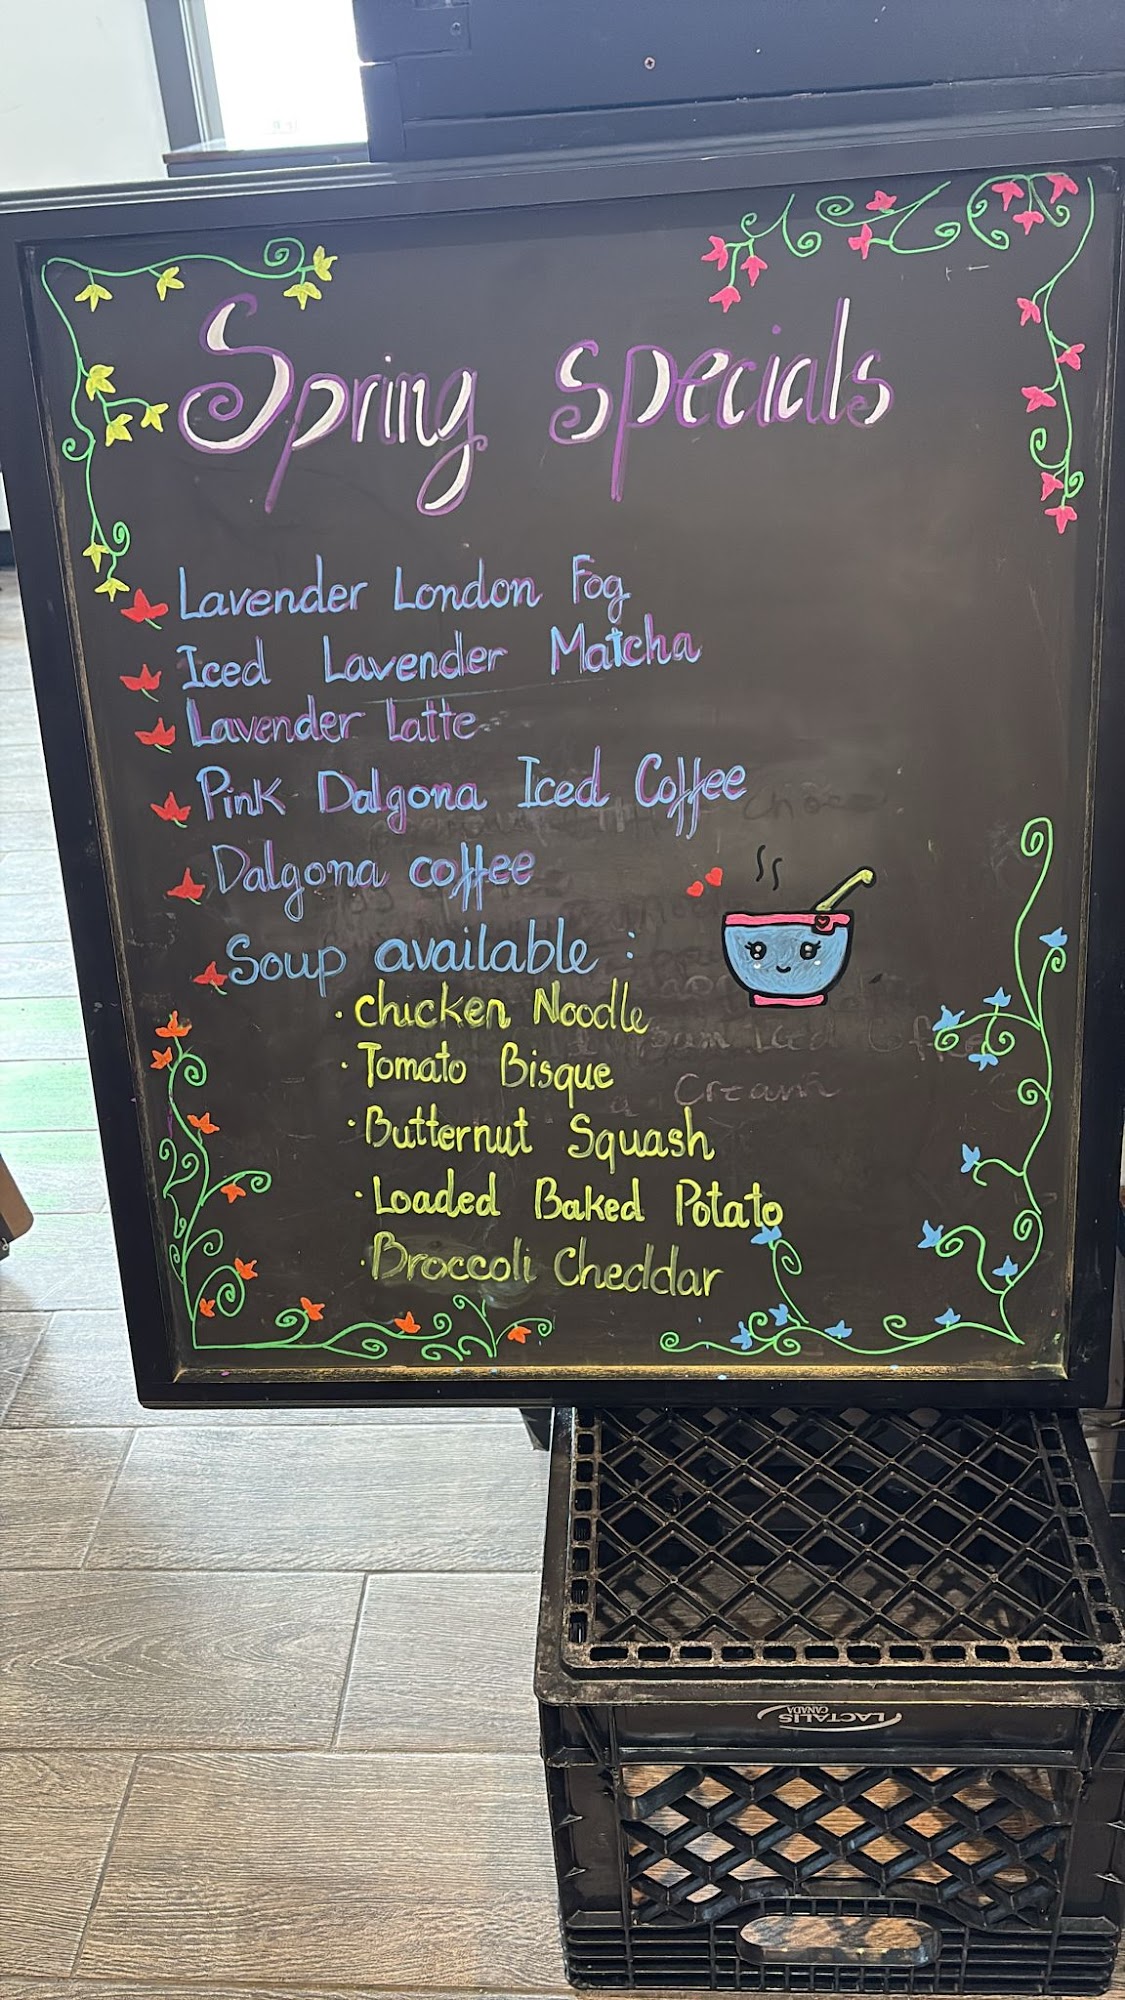 Spring specials
Lavender London Fog
Iced Lavender Matcha
Lavender Latte
Pink Dalgona Iced Coffee
Dalgona coffee
Soup available :
· Chicken Noodle
· Tomato Bisque
· Butternut Squash
· Loaded Baked Potato
· Broccoli Cheddar
Cream
LACTALIS
CANADA